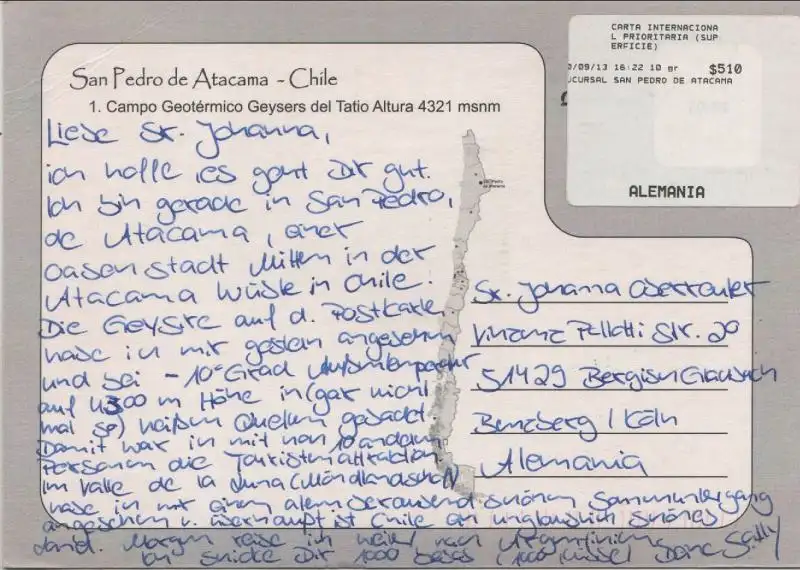 CARTA INTERNACIONA
L PRIORITARIA (SUP
ERFICIE)
0/09/13 16:22 10 gr $510
UCURSAL SAN PEDRO DE ATACAMA
ALEMANIA
San Pedro de Atacama - Chile
1. Campo Geotérmico Geysers del Tatio Altura 4321 msnm
Liebe Sr. Johanna,
ich hoffe es geht Dir gut.
Ich bin gerade in San Pedro,
de Atacama, einer
Oasenstadt Mitten in der
Atacama Wüste in Chile.
Die Geysire auf d. Postkarte
habe ich mir gestern angesehen
und bei -10 Grad Außentemperatur
auf 4300 m Höhe in (gar nicht
mal so) heißen Quellen gebadet.
Damit war ich mit 10 anderen
Personen die Touristenattraktion.
Im Valle de la Luna (Mondlandschaft)
habe ich mir einen atemberaubend schönen Sonnenuntergang
angesehen u. überhaupt ist Chile ein unglaublich schönes
Land. Morgen reise ich weiter nach Argentinien.
Ich schicke Dir 1000 besos (1000 Küsse) Deine Sally
Sr. Johanna
Vinzenz Pallotti Str. 20
51429 Bergisch Gladbach
Bensberg / Köln
Alemania